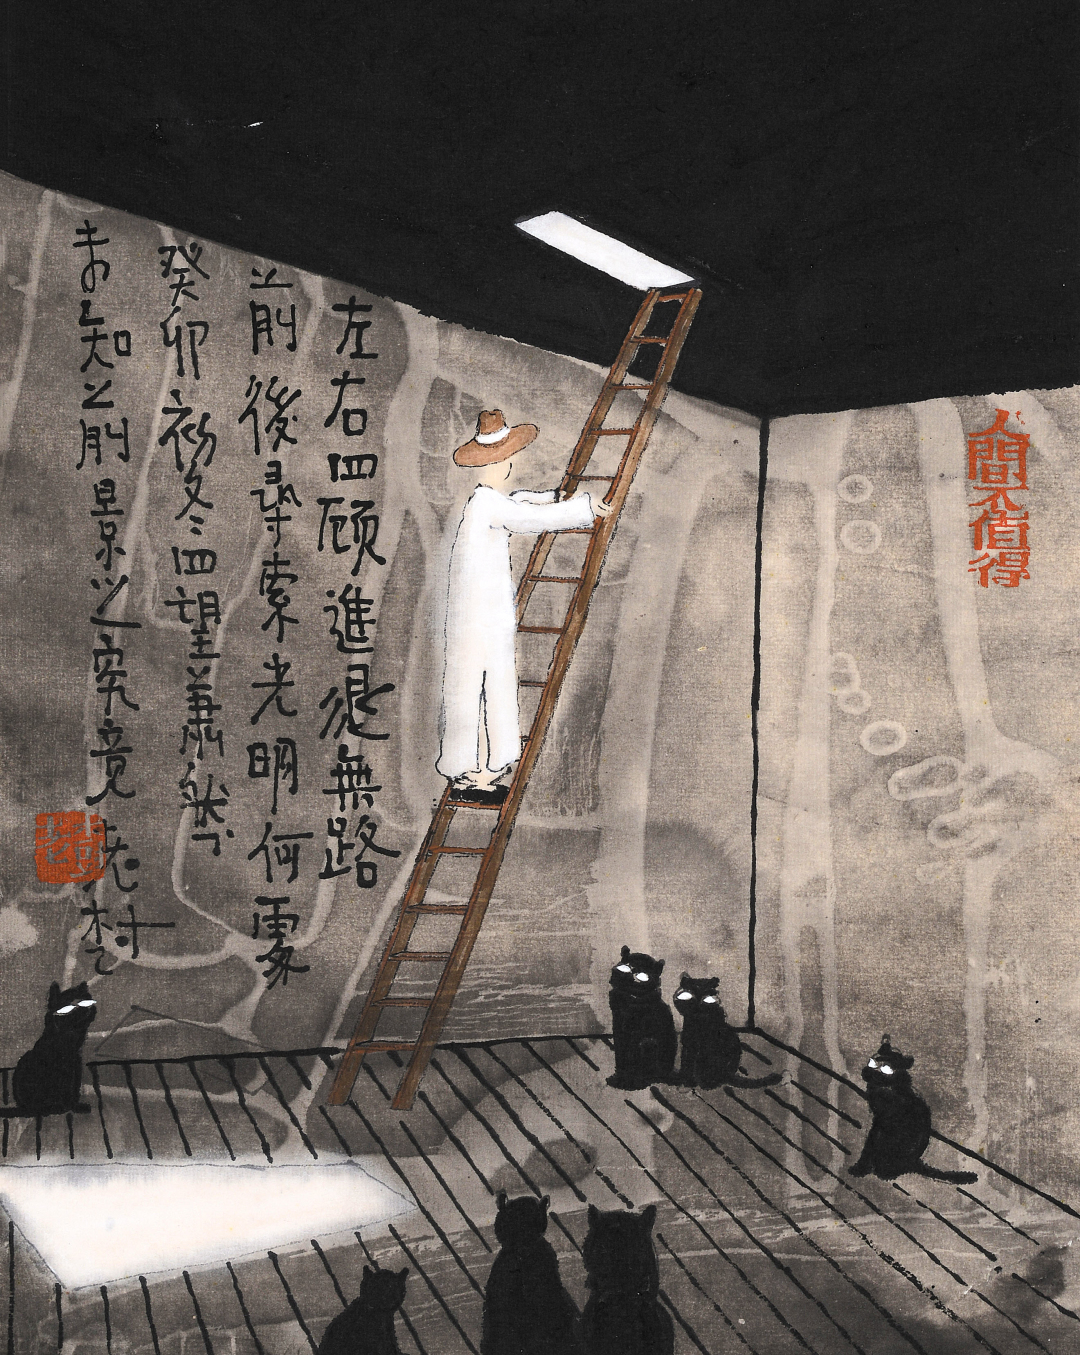 左右四顾進退無路
前後尋索光明何處
癸卯初冬四望蕭然
未知之前景之究竟 老村
人間不值得